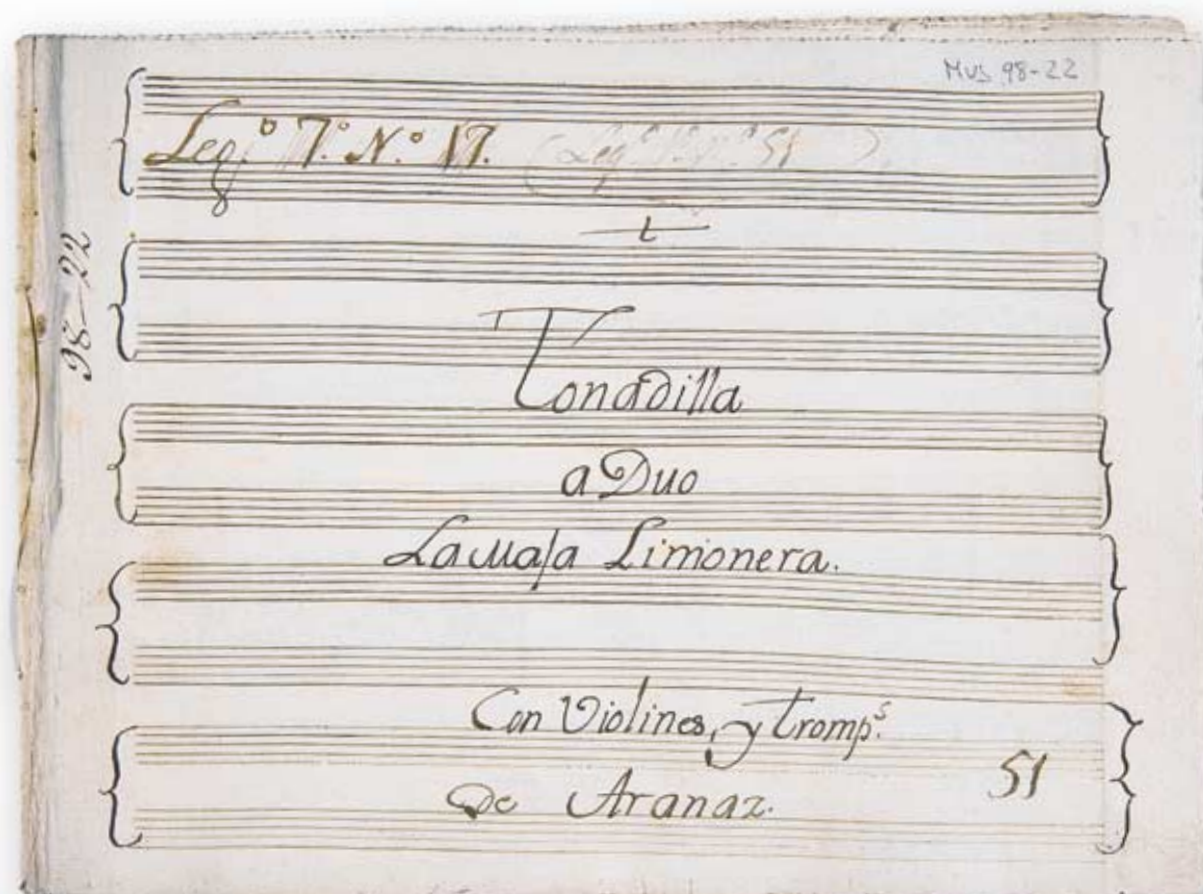 Mus 98-22
Legº 7º. N.º 17. (Legº 1º nº 51)
98-22
t
Tonadilla
a Duo
La Maja Limonera.
Con Violines, y tromp.s
De Aranaz.
51